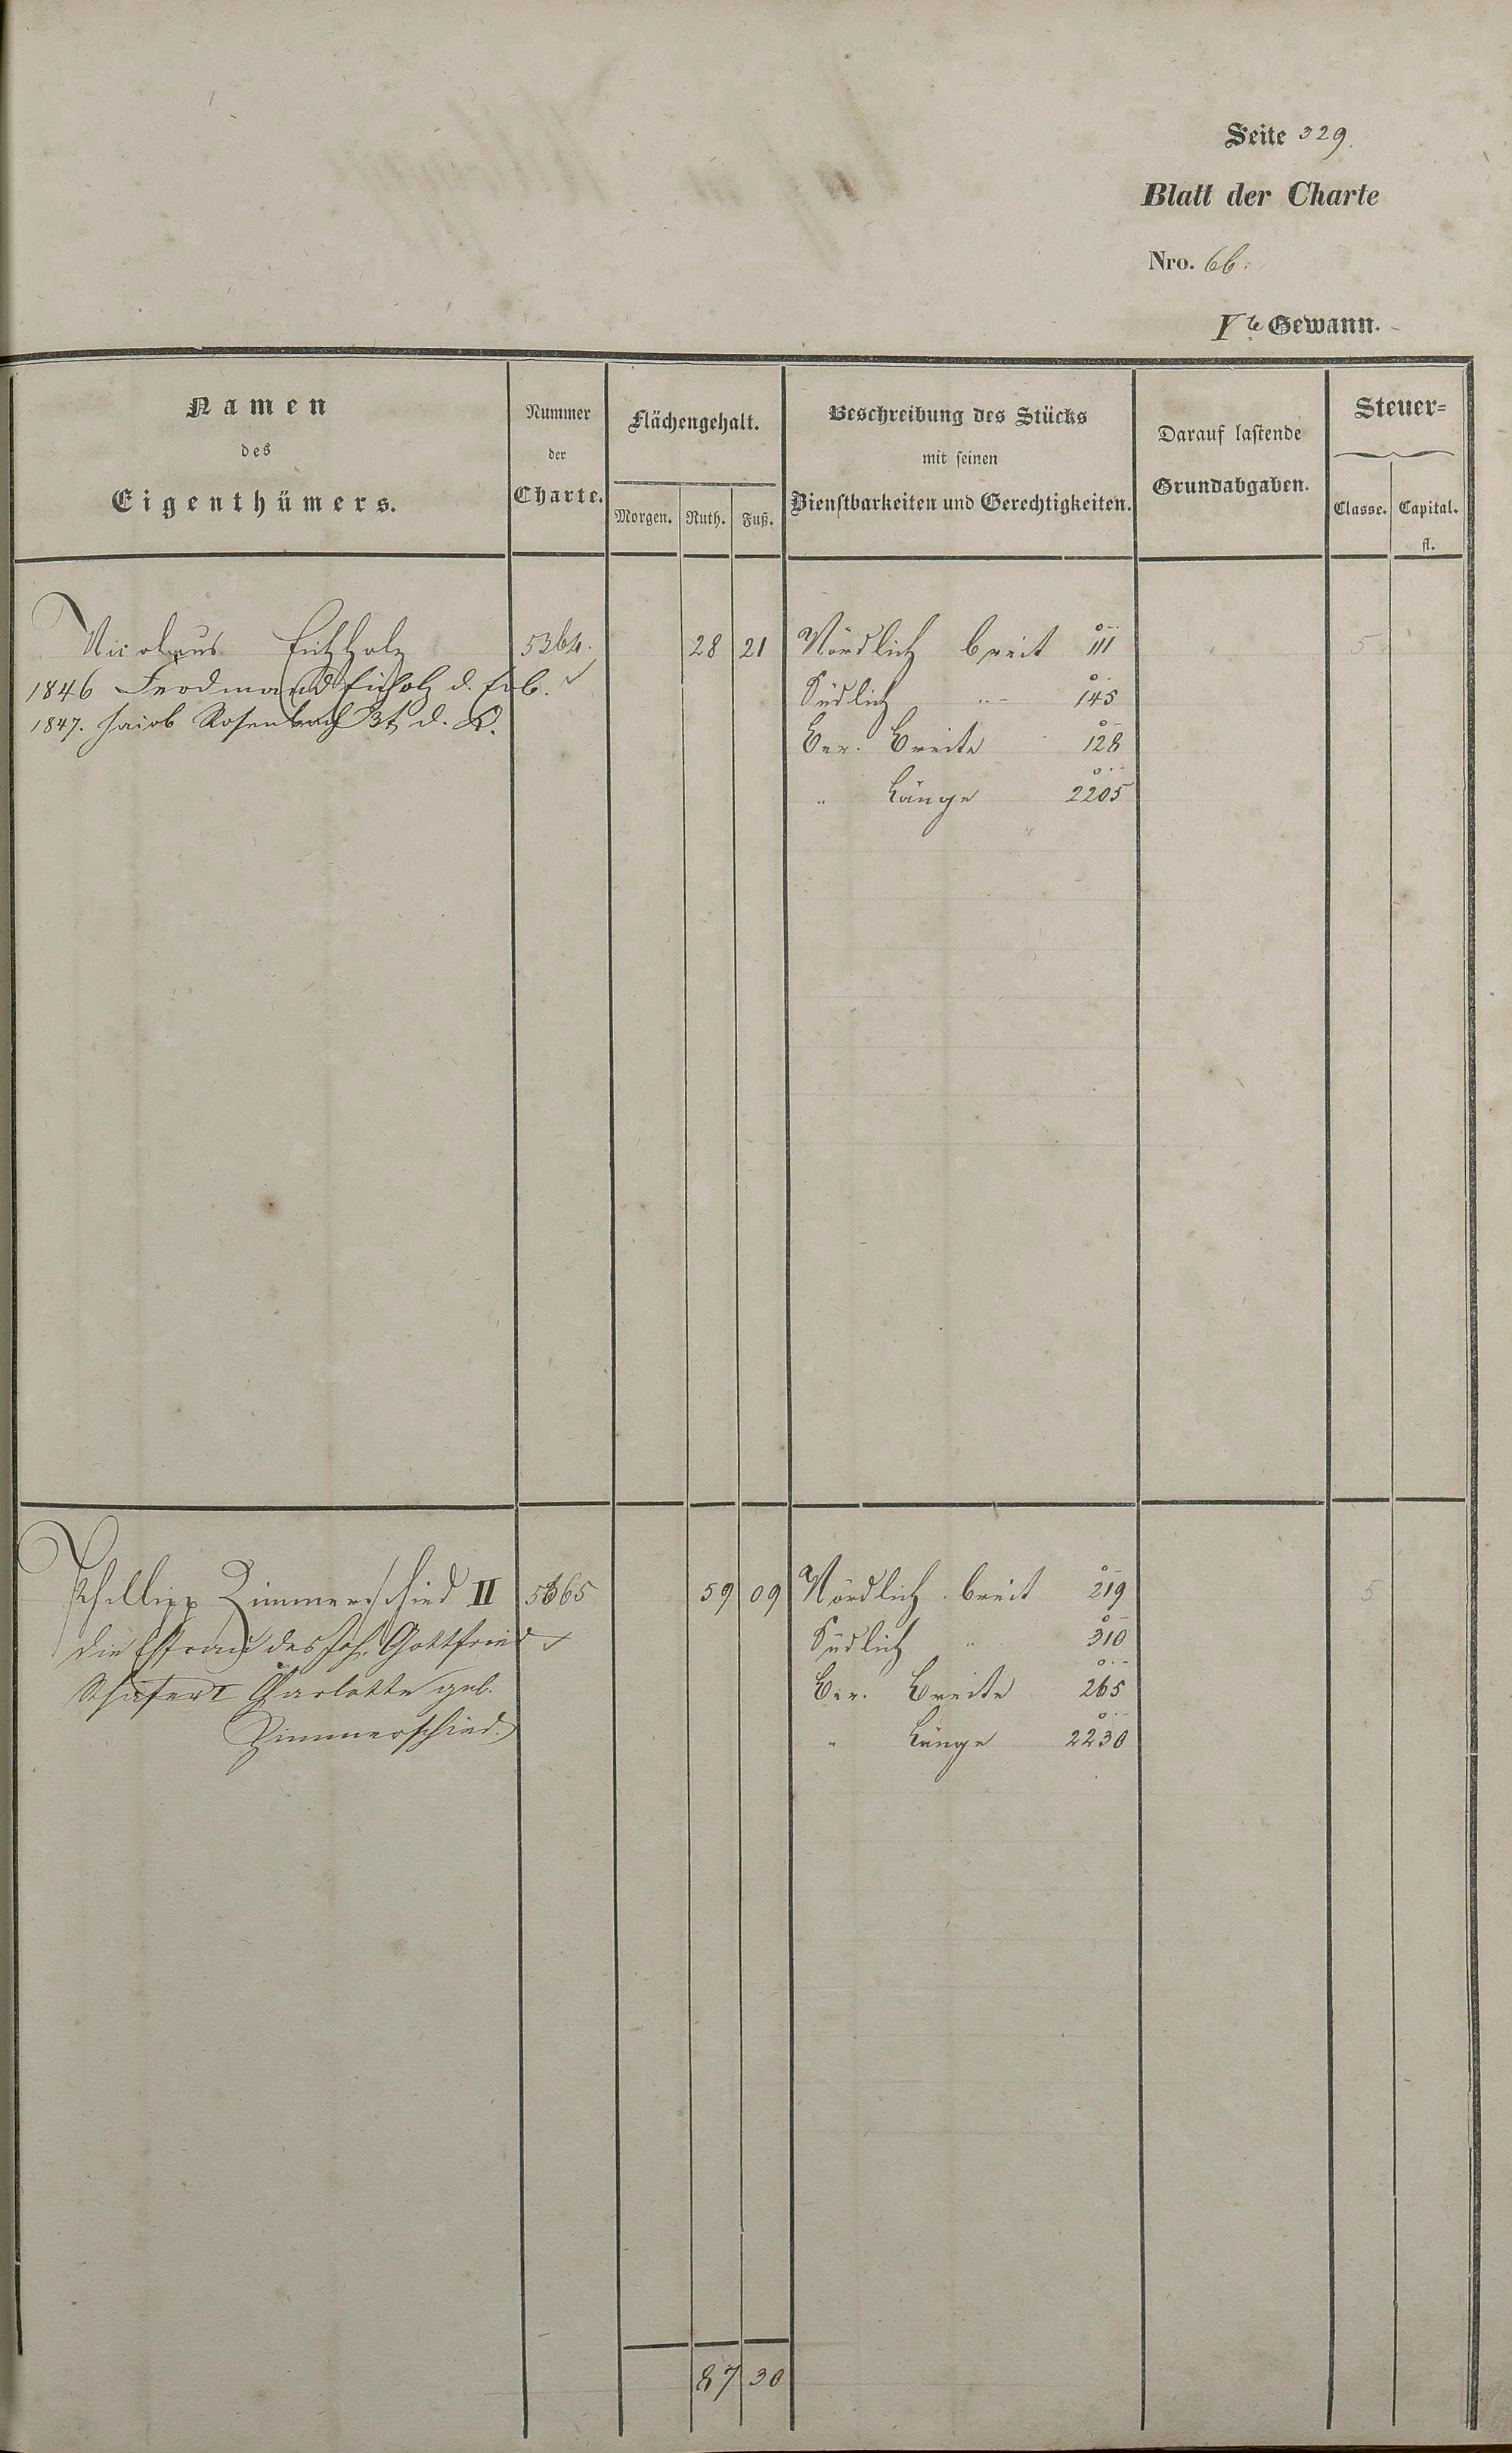 Seite 329.
Blatt der Charte
Nro. 66.
Vte Gewann.
Namen
des
Eigenthümers.
Nummer
der
Charte.
Flächengehalt.
Morgen. Ruth. Fuß.
Beschreibung des Stücks
mit seinen
Dienstbarkeiten und Gerechtigkeiten.
Darauf lastende
Grundabgaben.
Steuer=
Classe. Capital.
fl.
Nicolaus Eichholz 5364. 28 21 Nördlich breit 111 5
1846 Ferdinand Eicholz d. Erb. Südlich " 145
1847. Jacob Rosenbach 3t d. K. Ber. Breite 128
" Länge 2205
Phillipp Zimmerschied II 5365 59 09 Nördlich breit 219 5
die Ehfrau des Joh. Gottfried Südlich " 310
Schäfer I Charlotte geb. Ber. Breite 265
Zimmerschied. " Länge 2230
87 30